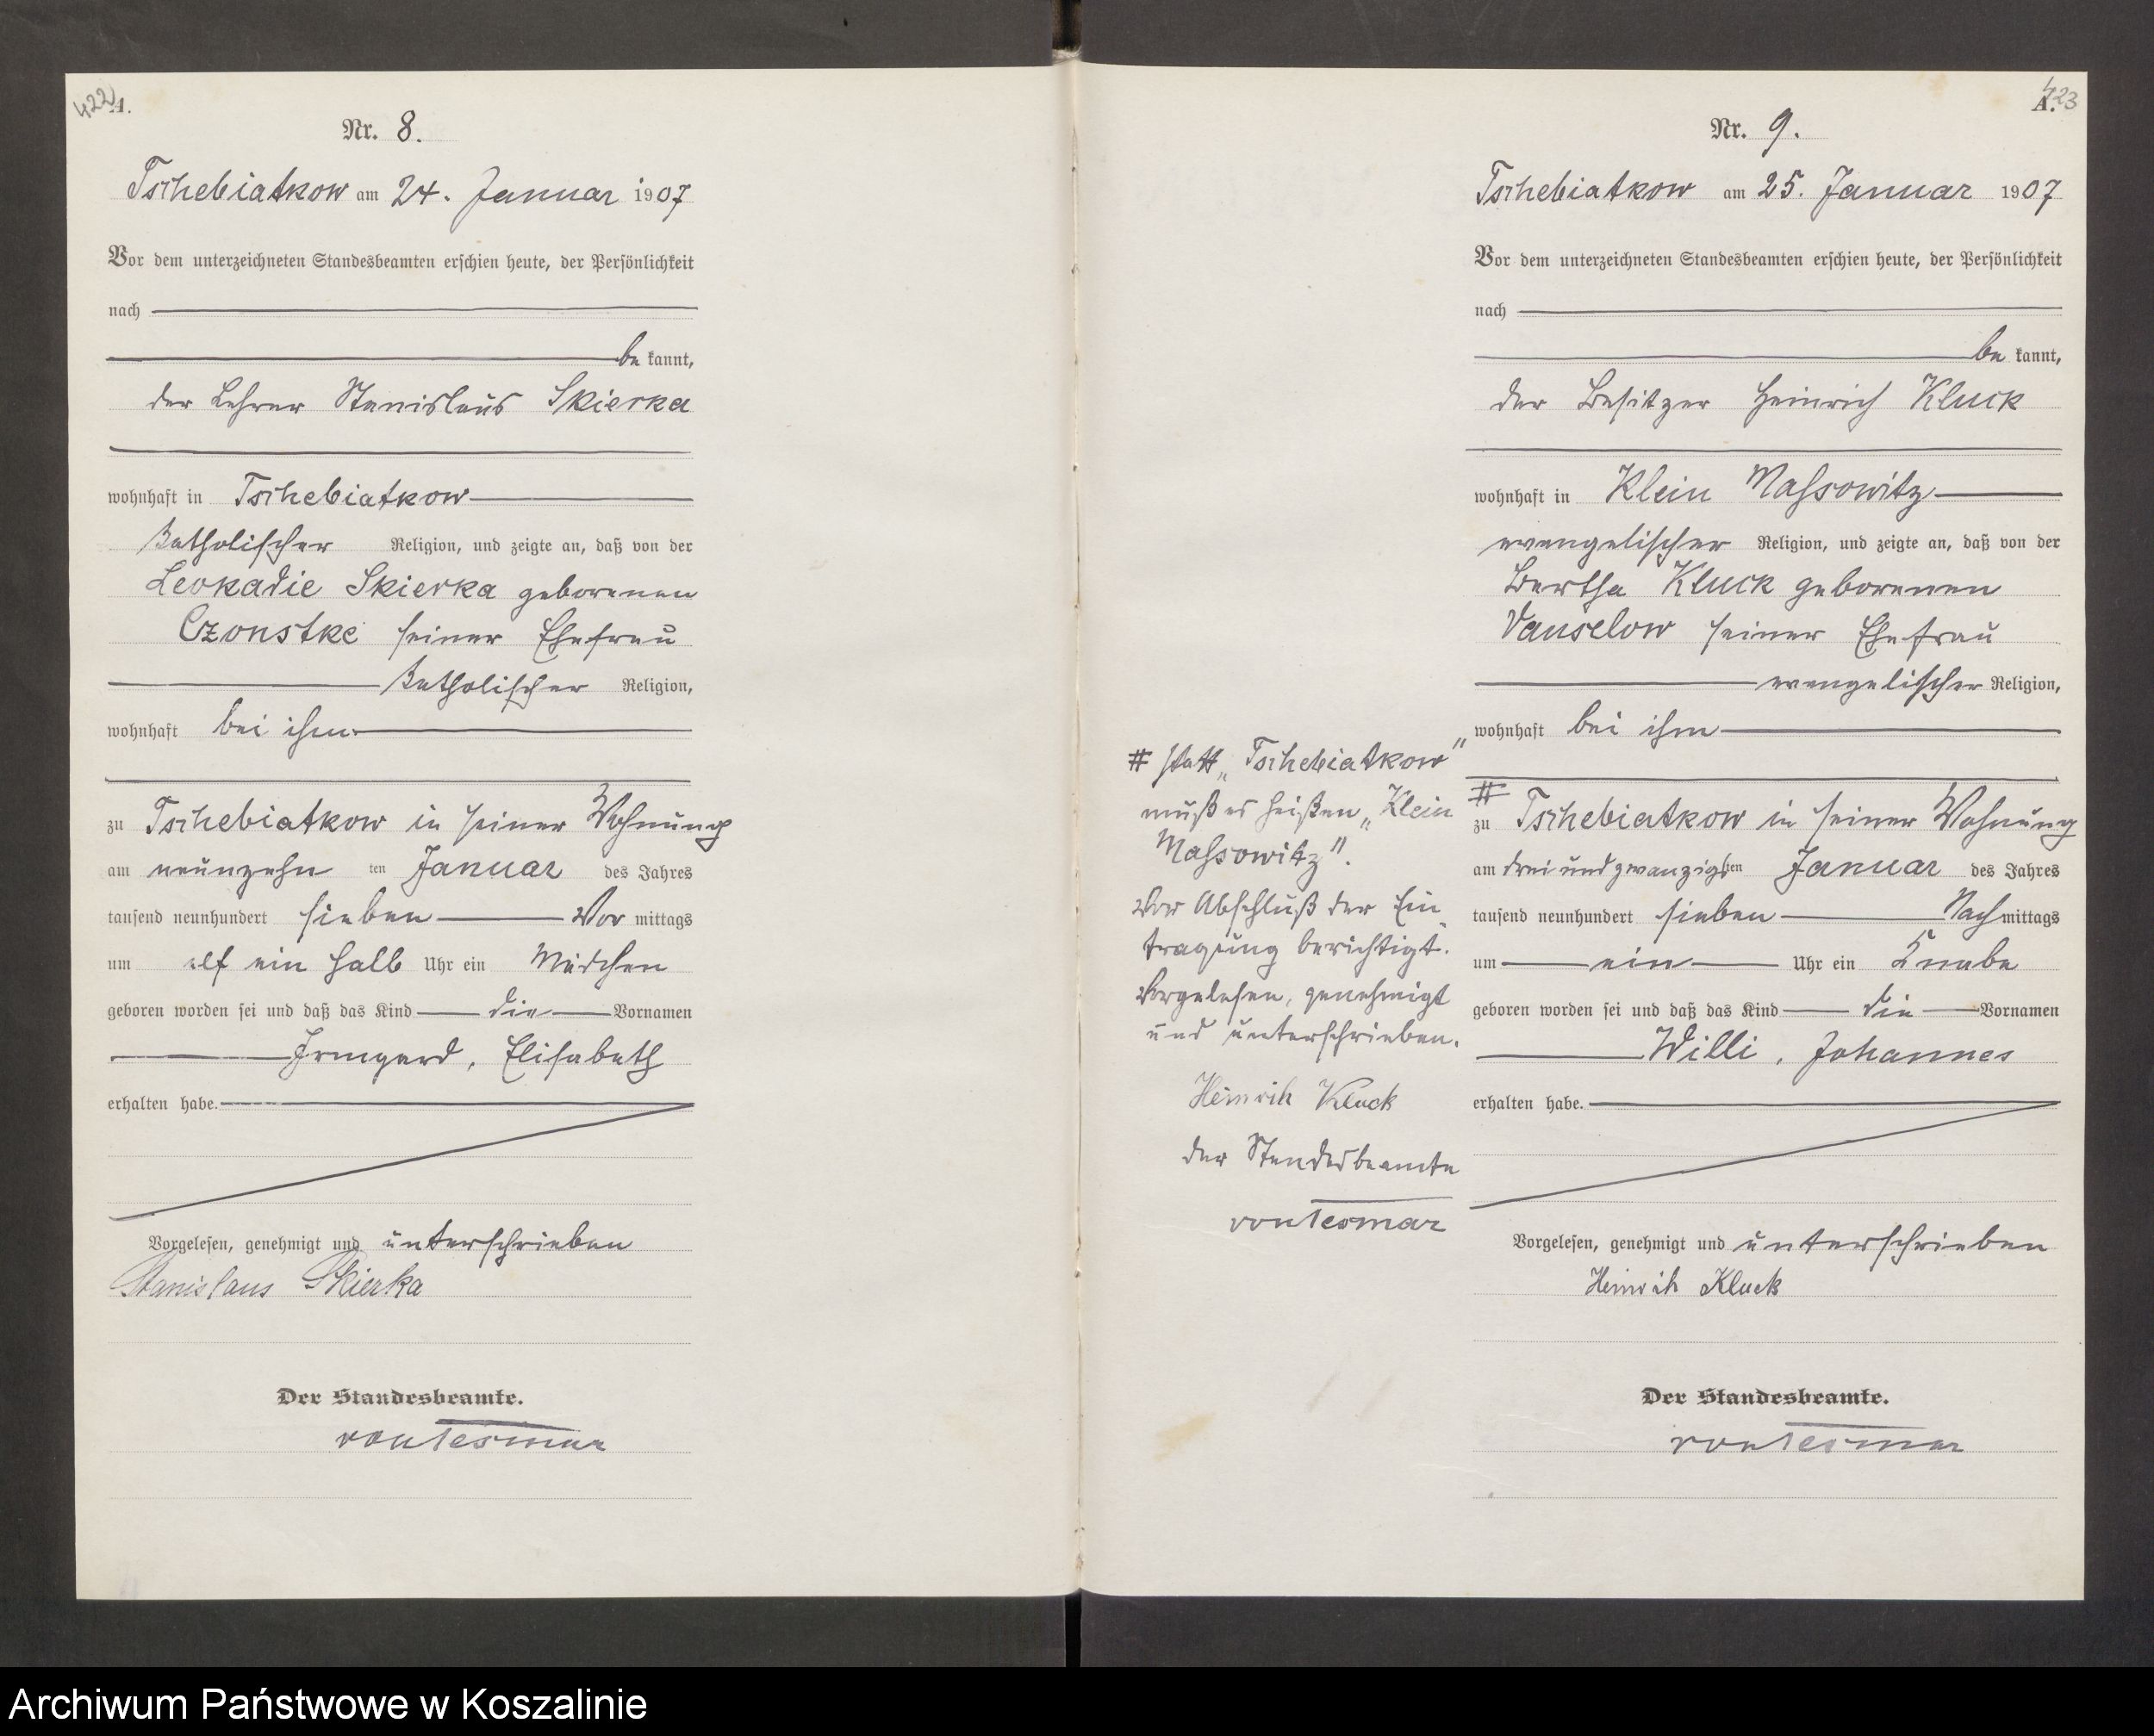 422
A.
Nr. 8.
Tschebiatkow am 24. Januar 1907
Vor dem unterzeichneten Standesbeamten erschien heute, der Persönlichkeit
nach
be kannt,
der Lehrer Stanislaus Skierka
wohnhaft in Tschebiatkow
katholischer Religion, und zeigte an, daß von der
Leokadie Skierka geborenen
Czonstke seiner Ehefrau
katholischer Religion,
wohnhaft bei ihm
zu Tschebiatkow in seiner Wohnung
am neunzehn ten Januar des Jahres
tausend neunhundert sieben Vor mittags
um elf ein halb Uhr ein Mädchen
geboren worden sei und daß das Kind die Vornamen
Irmgard, Elisabeth
erhalten habe.
Vorgelesen, genehmigt und unterschrieben
Stanislaus Skierka
Der Standesbeamte.
423
A.
Nr. 9.
Tschebiatkow am 25. Januar 1907
Vor dem unterzeichneten Standesbeamten erschien heute, der Persönlichkeit
nach
be kannt,
der Besitzer Heinrich Kluck
wohnhaft in Klein Massowitz
evangelischer Religion, und zeigte an, daß von der
Bertha Kluck geborenen
Vanselow seiner Ehefrau
evangelischer Religion,
wohnhaft bei ihm
# zu Tschebiatkow in seiner Wohnung
am drei und zwanzigsten Januar des Jahres
tausend neunhundert sieben Nach mittags
um ein Uhr ein Knabe
geboren worden sei und daß das Kind die Vornamen
Willi, Johannes
erhalten habe.
Vorgelesen, genehmigt und unterschrieben
Heinrich Kluck
Der Standesbeamte.
# statt „Tschebiatkow"
muß es heißen „Klein
Massowitz".
Vor Abschluß der Ein-
tragung berichtigt.
Vorgelesen, genehmigt
und unterschrieben.
Heinrich Kluck
der Standesbeamte
Archiwum Państwowe w Koszalinie